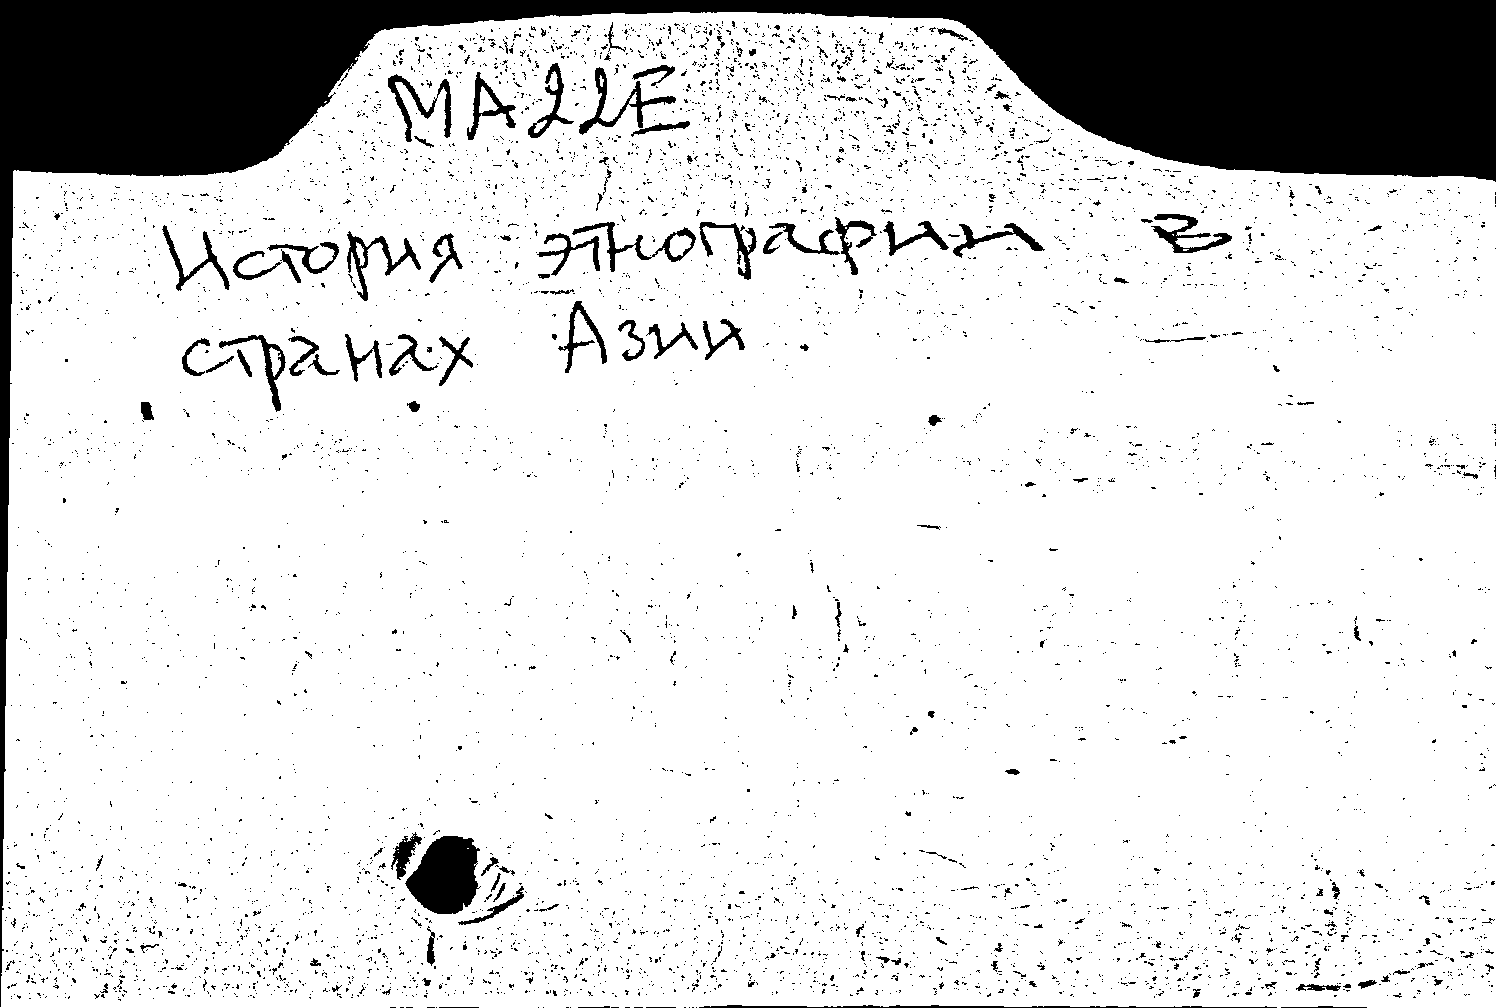 МА22Е
История этнографии в
странах Азии.